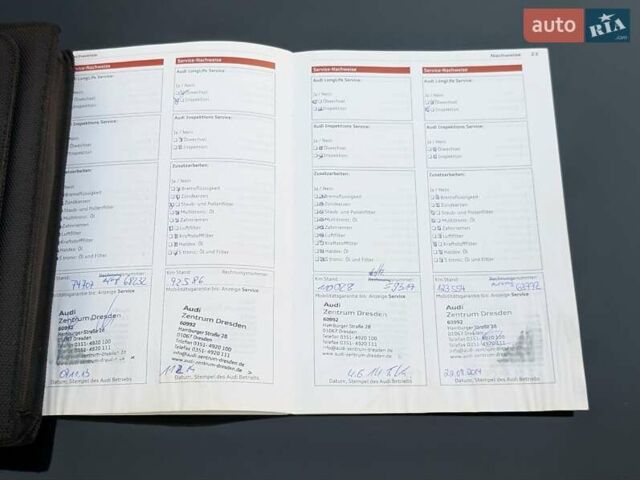 auto RIA.com
Nachweise
Service-Nachweise
Audi LongLife Service:
Ja / Nein
Ölwechsel
Inspektion
Audi Inspektions Service:
Ölwechsel
Inspektion
Zusatzarbeiten:
Ja / Nein
Bremsflüssigkeit
Zündkerzen
Staub- und Pollenfilter
Multitronic: Öl
Zahnriemen
Luftfilter
Kraftstofffilter
Haldex: Öl
S tronic: Öl und Filter
Km Stand:
74707
Mobilitätsgarantie bis: Anzeige Service
Audi
Zentrum Dresden
60992
Hamburger Straße 28
01067 Dresden
Telefon 0351- 4920 100
Telefax 0351- 4920 111
Datum, Stempel des Audi Betriebs
Service-Nachweise
Audi LongLife Service:
Ja / Nein
Ölwechsel
Inspektion
Audi Inspektions Service:
Ölwechsel
Inspektion
Zusatzarbeiten:
Ja / Nein
Bremsflüssigkeit
Zündkerzen
Staub- und Pollenfilter
Multitronic: Öl
Zahnriemen
Luftfilter
Kraftstofffilter
Haldex: Öl
S tronic: Öl und Filter
Km Stand: Rechnungsnummer:
92586
Mobilitätsgarantie bis: Anzeige Service
Audi
Zentrum Dresden
60992
Hamburger Straße 28
01067 Dresden
Telefon 0351- 4920 100
Telefax 0351- 4920 111
info@audi-zentrum-dresden.de
www.audi-zentrum-dresden.de
Datum, Stempel des Audi Betriebs
Nachweise
Service-Nachweise
Audi LongLife Service:
Ja / Nein
Ölwechsel
Inspektion
Audi Inspektions Service:
Ölwechsel
Inspektion
Zusatzarbeiten:
Ja / Nein
Bremsflüssigkeit
Zündkerzen
Staub- und Pollenfilter
Multitronic: Öl
Zahnriemen
Luftfilter
Kraftstofffilter
Haldex: Öl
S tronic: Öl und Filter
Km Stand: Rechnungsnummer:
Mobilitätsgarantie bis: Anzeige Service
Audi
Zentrum Dresden
60992
Hamburger Straße 28
01067 Dresden
Telefon 0351- 4920 100
Telefax 0351- 4920 111
info@audi-zentrum-dresden.de
www.audi-zentrum-dresden.de
Datum, Stempel des Audi Betriebs
Service-Nachweise
Audi LongLife Service:
Ja / Nein
Ölwechsel
Inspektion
Audi Inspektions Service:
Ölwechsel
Inspektion
Zusatzarbeiten:
Ja / Nein
Bremsflüssigkeit
Zündkerzen
Staub- und Pollenfilter
Multitronic: Öl
Zahnriemen
Luftfilter
Kraftstofffilter
Haldex: Öl
S tronic: Öl und Filter
Km Stand: Rechnungsnummer:
Mobilitätsgarantie bis: Anzeige Service
Audi
Zentrum Dresden
60992
Hamburger Straße 28
01067 Dresden
Telefon 0351- 4920 100
Telefax 0351- 4920 111
Datum, Stempel des Audi Betriebs